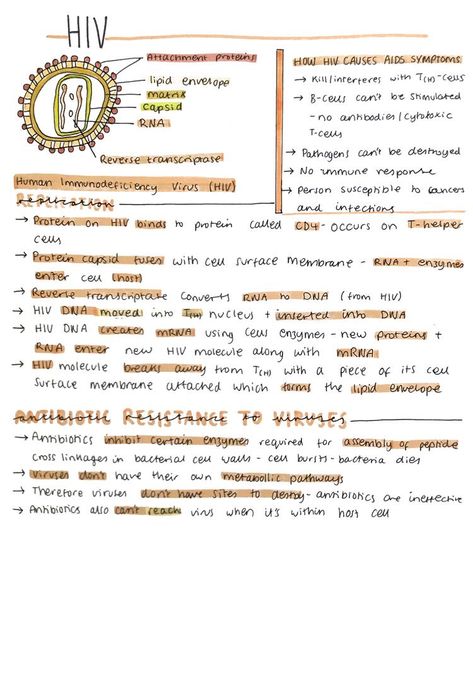 HIV
Attachment protein
lipid envelope
matrix
capsid
RNA
Reverse transcriptase
Human Immunodeficiency Virus (HIV)
HOW HIV CAUSES AIDS SYMPTOMS
→ Kill/interferes with T(H)-cells
→ B-cells can't be stimulated
- no antibodies/cytotoxic
T-cells
→ Pathogens can't be destroyed
→ No immune response
→ Person susceptible to cancers
and infections
REPLICATION
→ Protein on HIV binds to protein called CD4- occurs on T-helper
cells
→ Protein capsid fuses with cell surface membrane - RNA + enzymes
enter cell (host)
→ Reverse transcriptase converts RNA to DNA (from HIV)
→ HIV DNA moved into T(H) nucleus + inserted into DNA
→ HIV DNA creates mRNA using cells enzymes - new proteins +
RNA enter new HIV molecule along with mRNA
→ HIV molecule breaks away from T(H) with a piece of its cell
surface membrane attached which forms the lipid envelope
ANTIBIOTIC RESISTANCE TO VIRUSES
→ Antibiotics inhibit certain enzymes required for assembly of peptide
cross linkages in bacterial cell walls - cell bursts - bacteria dies
→ Viruses don't have their own metabolic pathways
→ Therefore viruses don't have sites to destroy - antibiotics are ineffective
→ Antibiotics also can't reach virus when it's within host cell